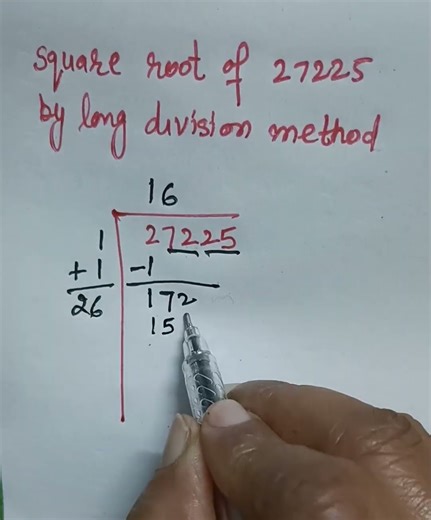 Square root of 27225
by long division method
16
1 27225
+1 -1
26 172
15